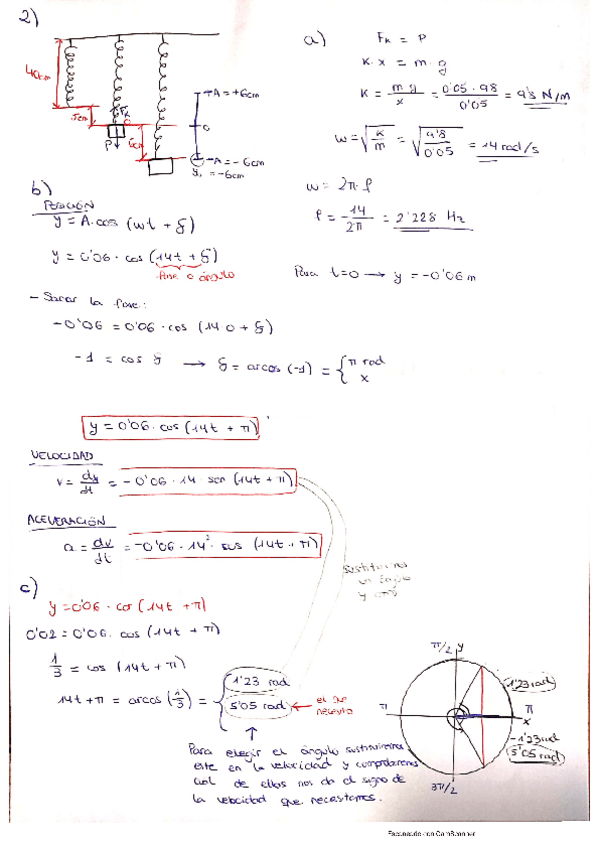 2)
40cm
5cm
Fk
0
P
6cm
+A = +6cm
0
-A = -6cm
y₀ = -6cm
a) Fk = P
K·x = m·g
K = m·g / x = 0'05·9'8 / 0'05 = 9'8 N/m
w = √(K/m) = √(9'8/0'05) = 14 rad/s
w = 2π·f
f = 14/2π = 2'228 Hz
Para t=0 → y = -0'06 m
b)
POSICIÓN
y = A·cos (wt + ξ)
y = 0'06 · cos (14t + ξ)
fase o ángulo
- Sacar la fase:
-0'06 = 0'06 · cos (14·0 + ξ)
-1 = cos ξ → ξ = arcos (-1) = { π rad
x
y = 0'06 · cos (14t + π)
VELOCIDAD
v = dy/dt = -0'06 · 14 sen (14t + π)
ACELERACIÓN
a = dv/dt = -0'06 · 14² · cos (14t + π)
sustituimos
c)
y = 0'06 · cos (14t + π)
0'02 = 0'06 · cos (14t + π)
1/3 = cos (14t + π)
14t + π = arcos (1/3) = { 1'23 rad
5'05 rad ← el que necesito
Para elegir el ángulo sustituiremos
este en la velocidad y comprobaremos
cual de ellos nos da el signo de
la velocidad que necesitamos.
π/2
y
1'23 rad
π
π
x
-1'23 rad
5'05 rad
3π/2
Escaneado con CamScanner